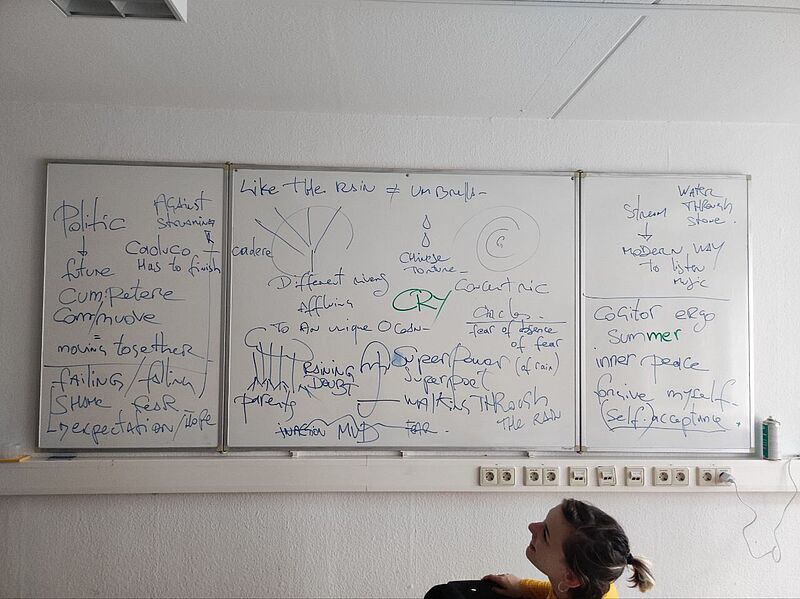 Politic
AGAINST
STREAMING
Caduco
HAS to finish
future
Cumpetere
Com/muove
=
moving together
failing/falling
SHAME fear
expectation/Hope
Like THE RAIN ≠ UMBRella
cadere
CHINESE
TORTURE
Different rivers
Affluing
To AN unique OCean
CRY
Concentric
Circles
fear of absence
of fear
RAINING
DOUBT
parents
Superpower (of rain)
Superpoet
WALKING THROUGH
THE RAIN
INVASION MUD FEAR
WATER
THROUGH
Stone
STREAM
MODERN WAY
TO listen
Music
Cogitor ergo
summer
inner peace
forgive myself
(self) acceptance